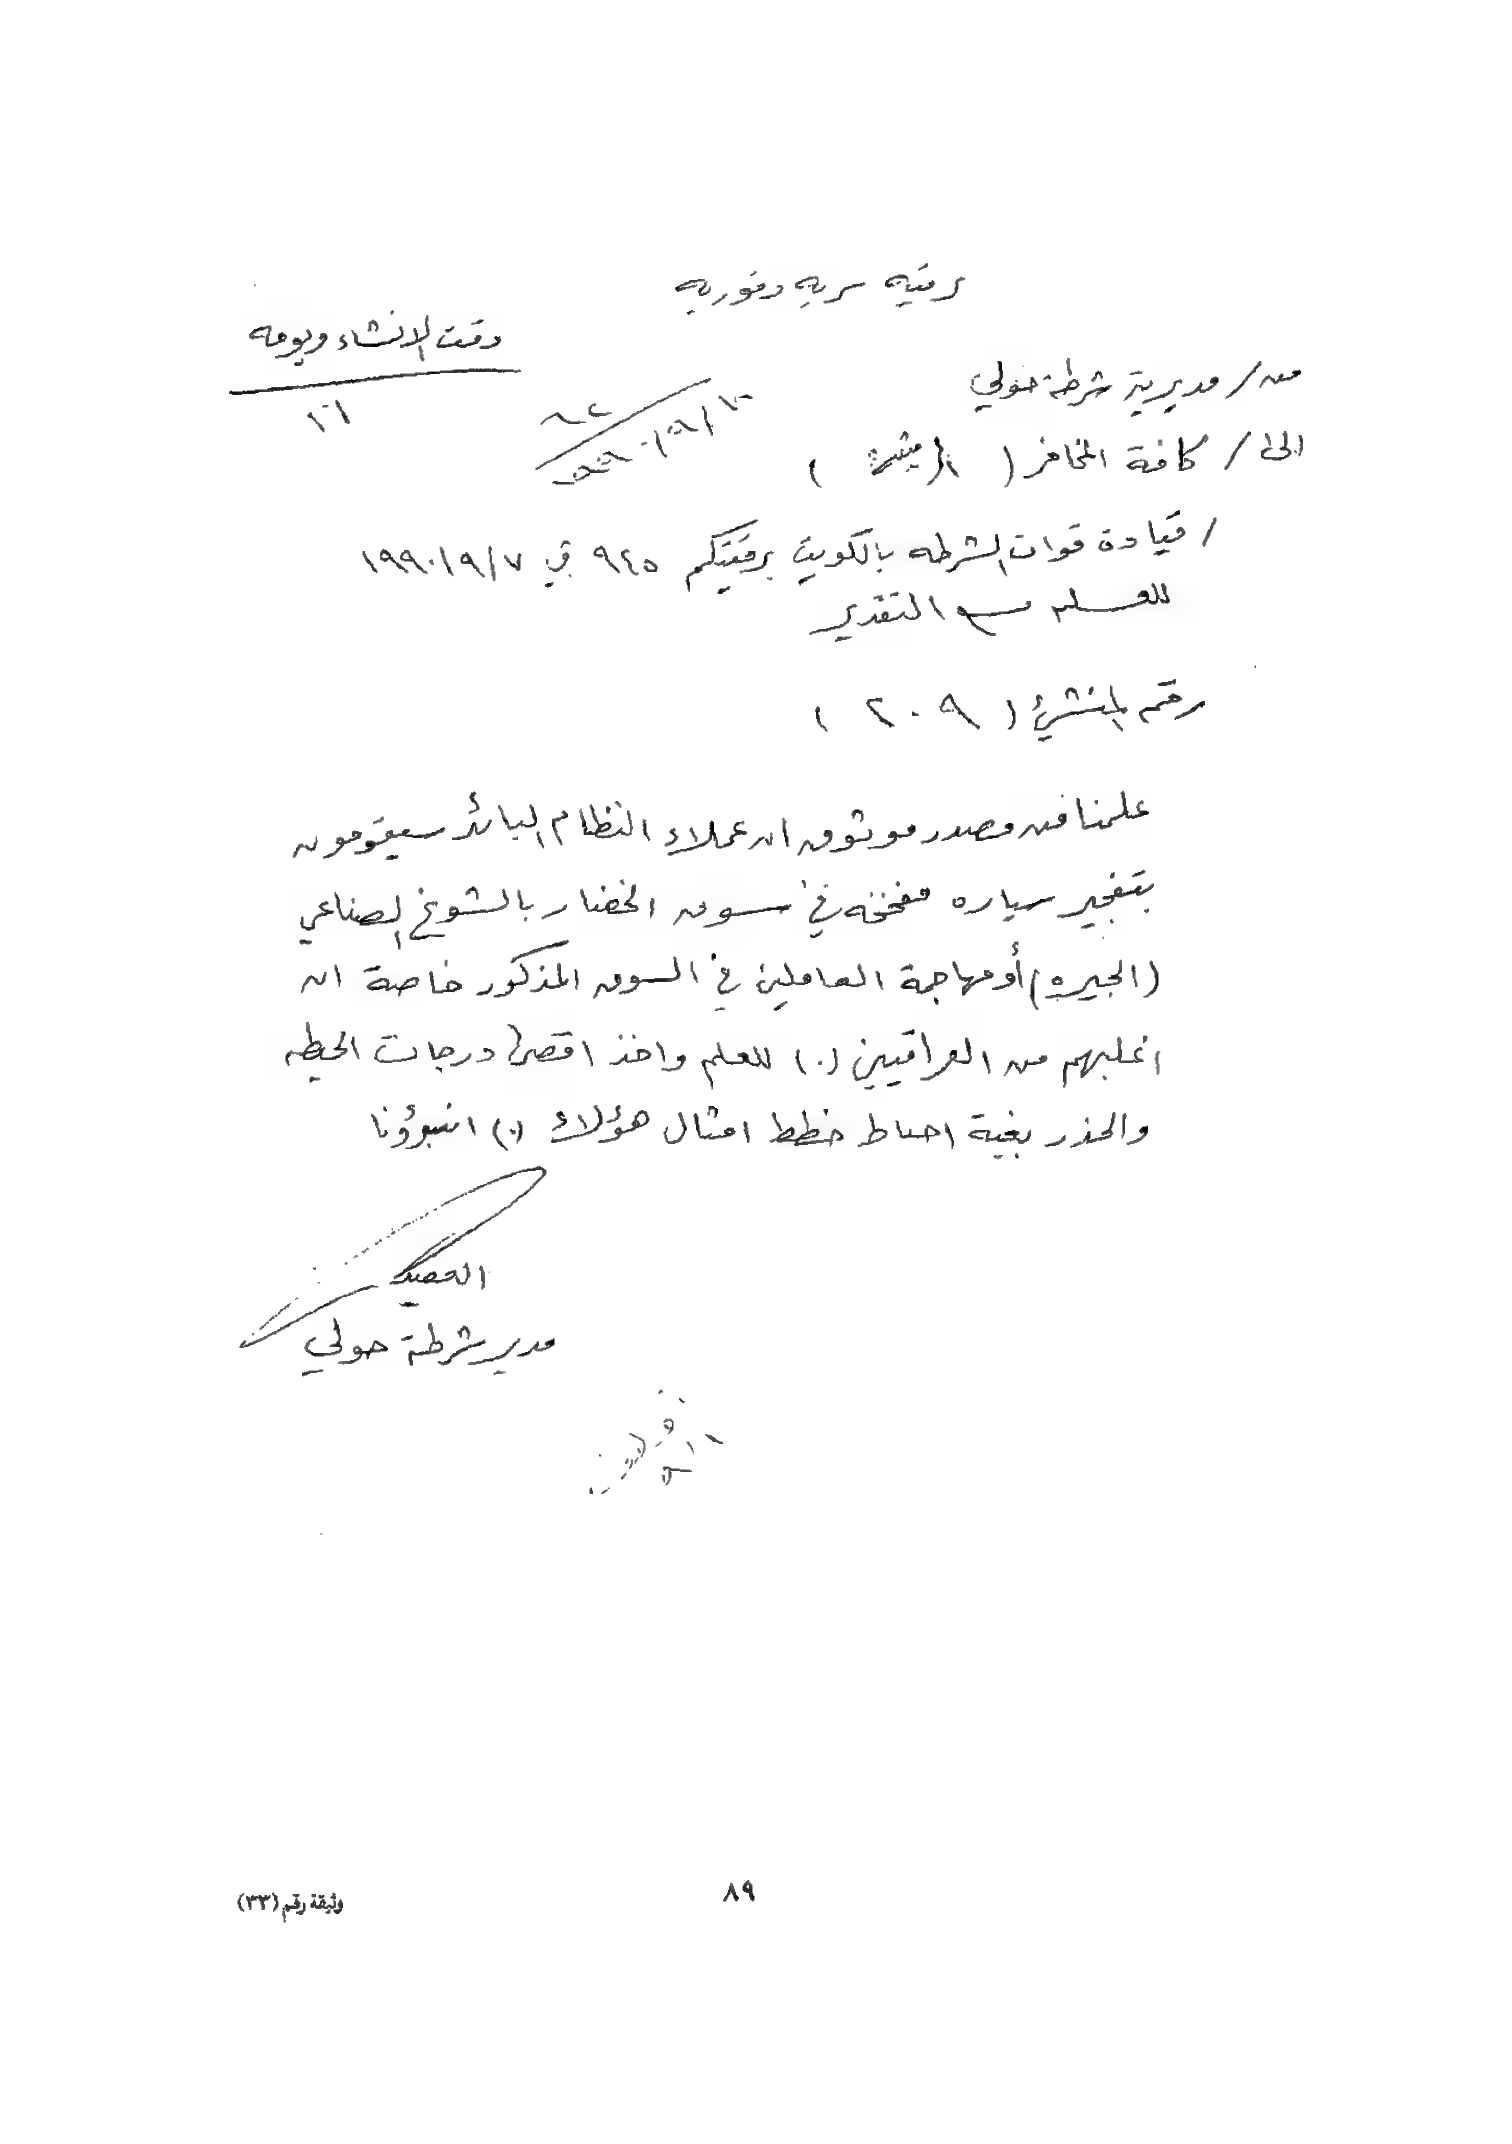 برقيه سريه وفوريه
وقت الانشاء ويومه
من / مديرية شرطة حولي
الى / كافة المخافر ( )
٦٢
١٩٩٠/٩/١٠
/ قيادة قوات الشرطه بالكويت برقيتكم ٩٤٥ في ١٩٩٠/٩/٧
للعلم مع التقدير
رقم المنشئ ( ٢٠٩ )
علمنا من مصدر موثوق ان عملاء النظام البائد سيقومون
بتفجير سياره مفخخه في سوق الخضار بالشويخ الصناعي
(الجبره) أو مهاجمة العاملين في السوق المذكور خاصة ان
اغلبهم من العراقيين (٠) للعلم واخذ اقصى درجات الحيطه
والحذر بغية احباط خطط امثال هؤلاء (٠) انبؤونا
العميد
مدير شرطة حولي
٨٩
وثيقة رقم (٣٣)